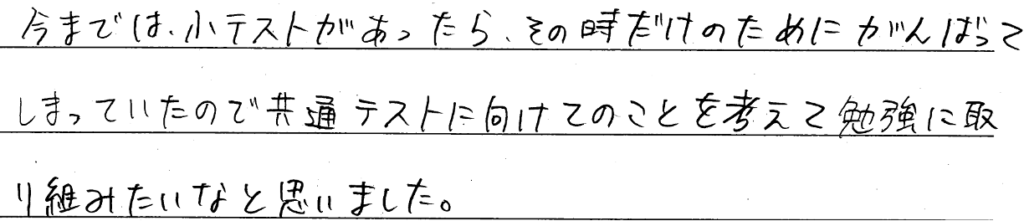 今までは、小テストがあったら、その時だけのためにがんばって
しまっていたので共通テストに向けてのことを考えて勉強に取
り組みたいなと思いました。